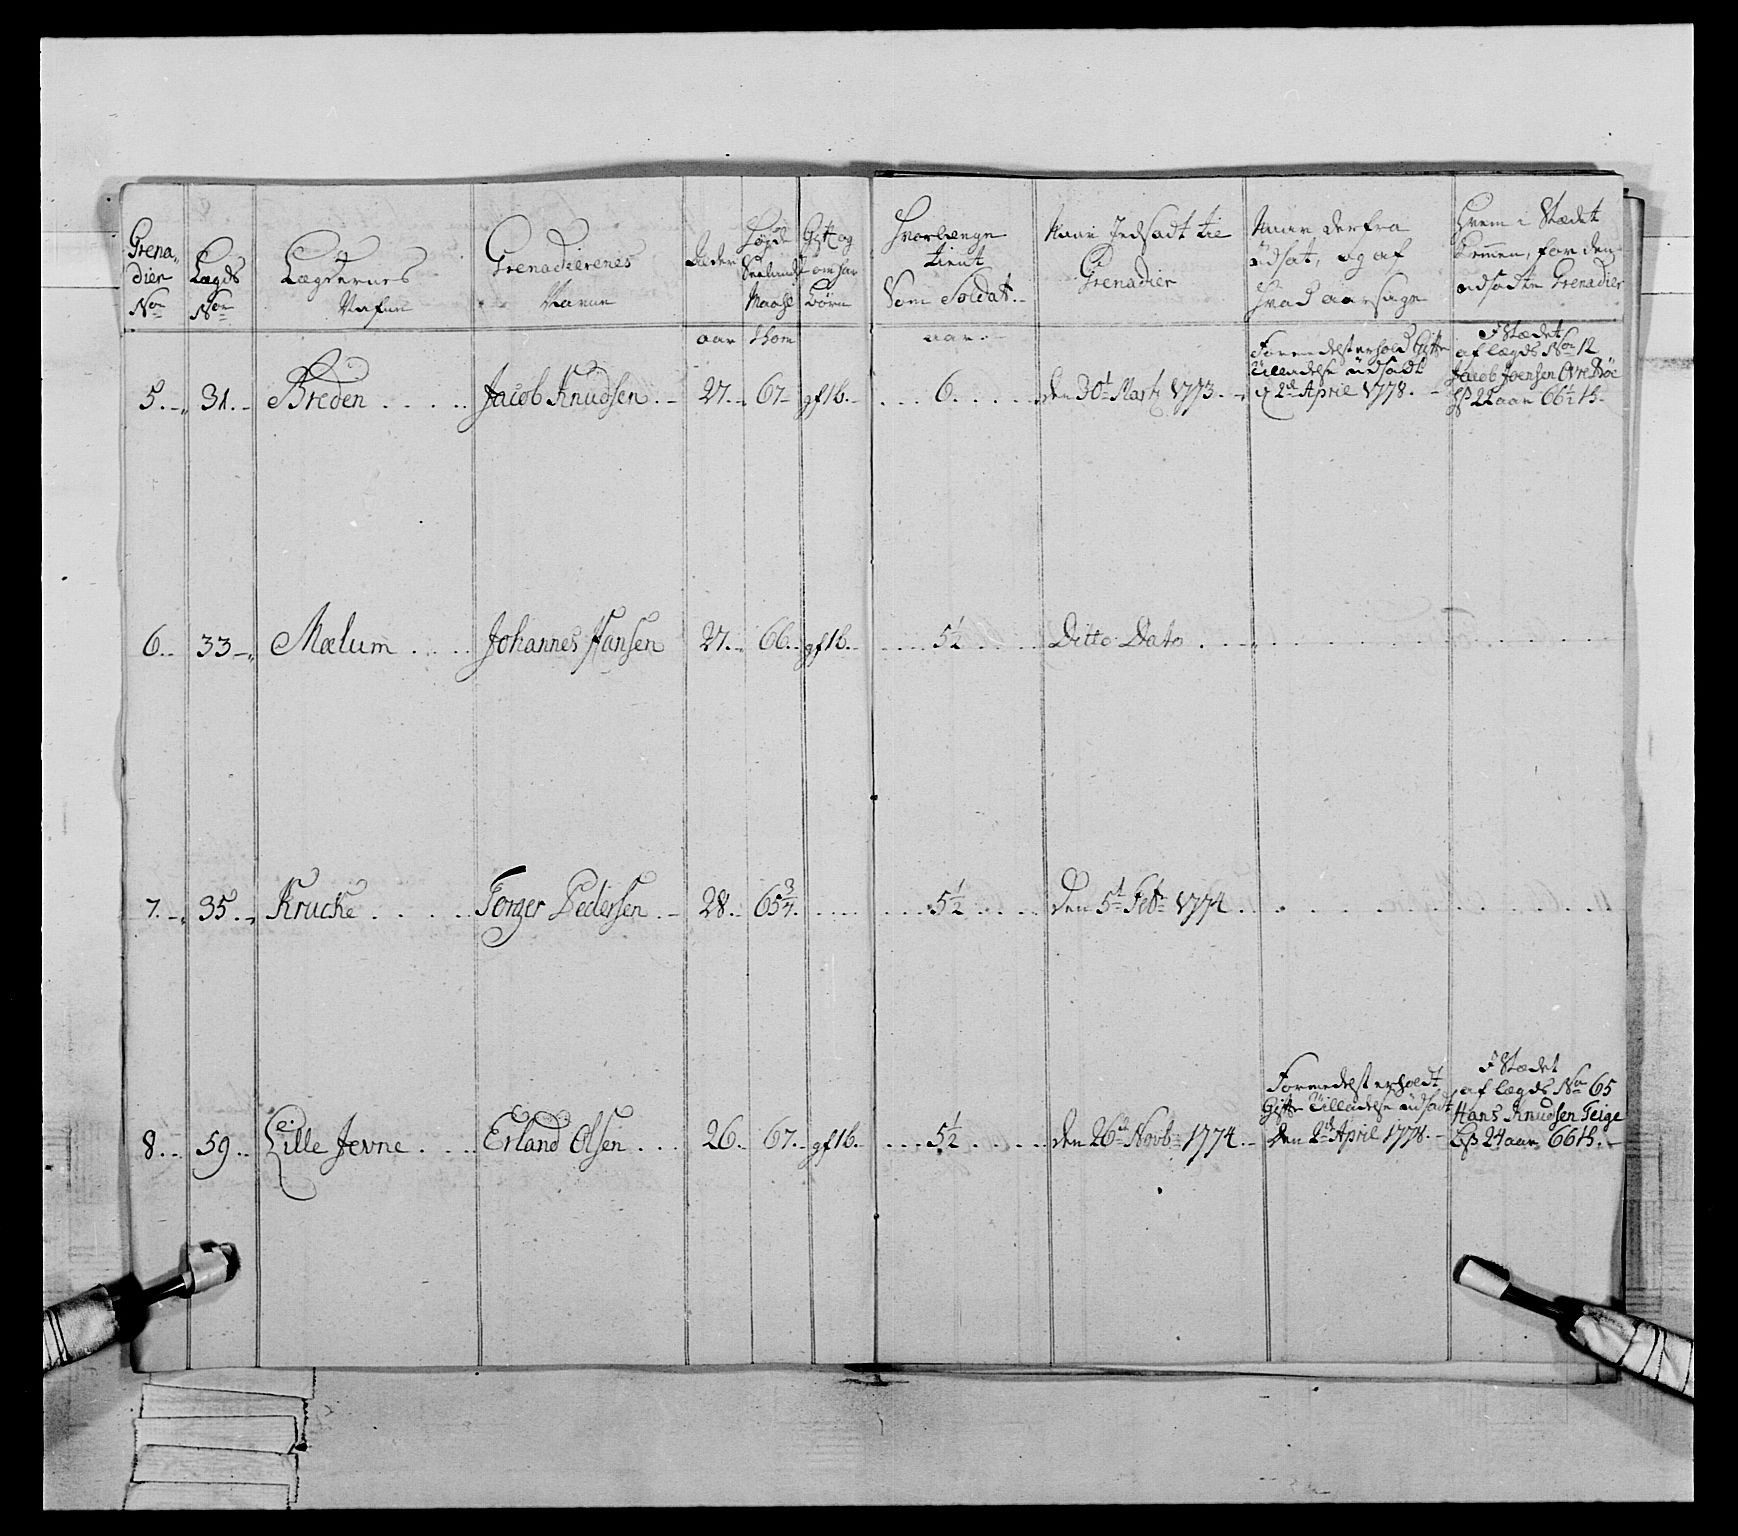 Grena-
dier
No
Lægds
No
Lægdernes
Nafne
Grenadierenes
Nafne
Alder
Høyde
Maahl
Gift og
om har
Børn
Hvorlænge
tient
Som Soldat
Naar Indsadt til
Grenadier
Naar derfra
udsat, og af
hvad aarsage
Hvem i Stædet
kommen, for den
udsadte Grenadier
aar
thom
aar
5. 31. Breden Jacob Knudsen. 27. 67 gf1b. 6. den 30t Marti 1773.
Formedelst erhold Gifte
Tilladelse udsadt
d 2d April 1778.
I Stædet
af lægds No 12
Jacob Joensen
22 aar 66½ th.
6. 33 Mælum Johannes Hansen 27. 66. gf1b. 5½ Ditto Dato
7. 35. Krucke Torger Pedersen 28. 65¾. 5½ Den 5t Feb 1774
8. 59. Lille Jevne Erland Olsen 26. 67. gf1b. 5½ den 26d Novb 1774.
Formedelst erholdt
Gifte Tilladelse udsadt
den 2d April 1778.
I Stædet
af lægds No 65
Hans Knudsen Teige
24 aar 66 th.